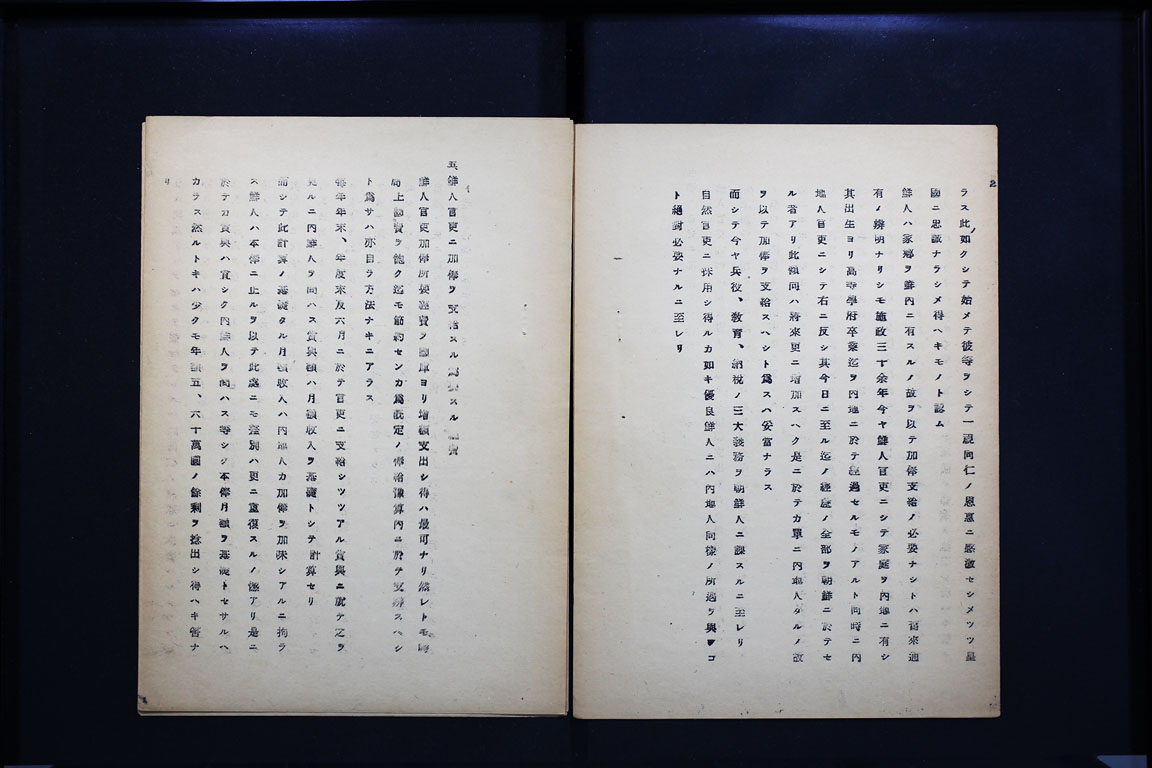 ラス此如クシテ始メテ彼等ヲシテ一視同仁ノ恩惠ニ感激セシメツツ皇
國ニ忠誠ナラシメ得ヘキモノト認ム
鮮人ハ家鄕ヲ鮮內ニ有スルノ故ヲ以テ加俸支給ノ必要ナシトハ古來通
有ノ辨明ナリシモ施政三十余年今ヤ鮮人官吏ニシテ家庭ヲ內地ニ有シ
其出生ヨリ高等學府卒業迄ヲ內地ニ於テ經過セルモノアルト同時ニ內
地人官吏ニシテ右ニ反シ其今日ニ至ル迄ノ經歷ノ全部ヲ朝鮮ニ於テセ
ル者アリ此傾向ハ將來更ニ增加スヘク是ニ於テカ單ニ內地人タルノ故
ヲ以テ加俸ヲ支給スヘシト爲スハ妥當ナラス
而シテ今ヤ兵役、敎育、納稅ノ三大義務ヲ朝鮮人ニ課スルニ至レリ
自然官吏ニ採用シ得ルカ如キ優良鮮人ニハ內地人同樣ノ所遇ヲ與フコ
ト絕對必要ナルニ至レリ
五 鮮人官吏ニ加俸ヲ支給スル爲要スル經費
鮮人官吏加俸所要經費ヲ國庫ヨリ增額支出シ得ハ最可ナリ然レトモ時
局上國費ヲ飽ク迄モ節約センカ爲既定ノ俸給豫算內ニ於テ支辨スヘシ
ト爲サハ亦自ラ方法ナキニアラス
每年年末、年度末及六月ニ於テ官吏ニ支給シツツアル賞與ニ就テ之ヲ
見ルニ內鮮人ヲ問ハス賞與額ハ月額收入ヲ基礎トシテ計算セリ
而シテ此計算ノ基礎タル月額收入ハ內地人カ加俸ヲ加味シアルニ拘ラ
ス鮮人ハ本俸ニ止ルヲ以テ此處ニモ差別ハ更ニ重復スルノ感アリ是ニ
於テカ賞與ハ宜シク內鮮人ヲ問ハス等シク本俸月額ヲ基礎トセサルヘ
カラス然ルトキハ少クモ年額五、六十萬圓ノ餘剩ヲ捻出シ得ヘキ筈ナ
リ